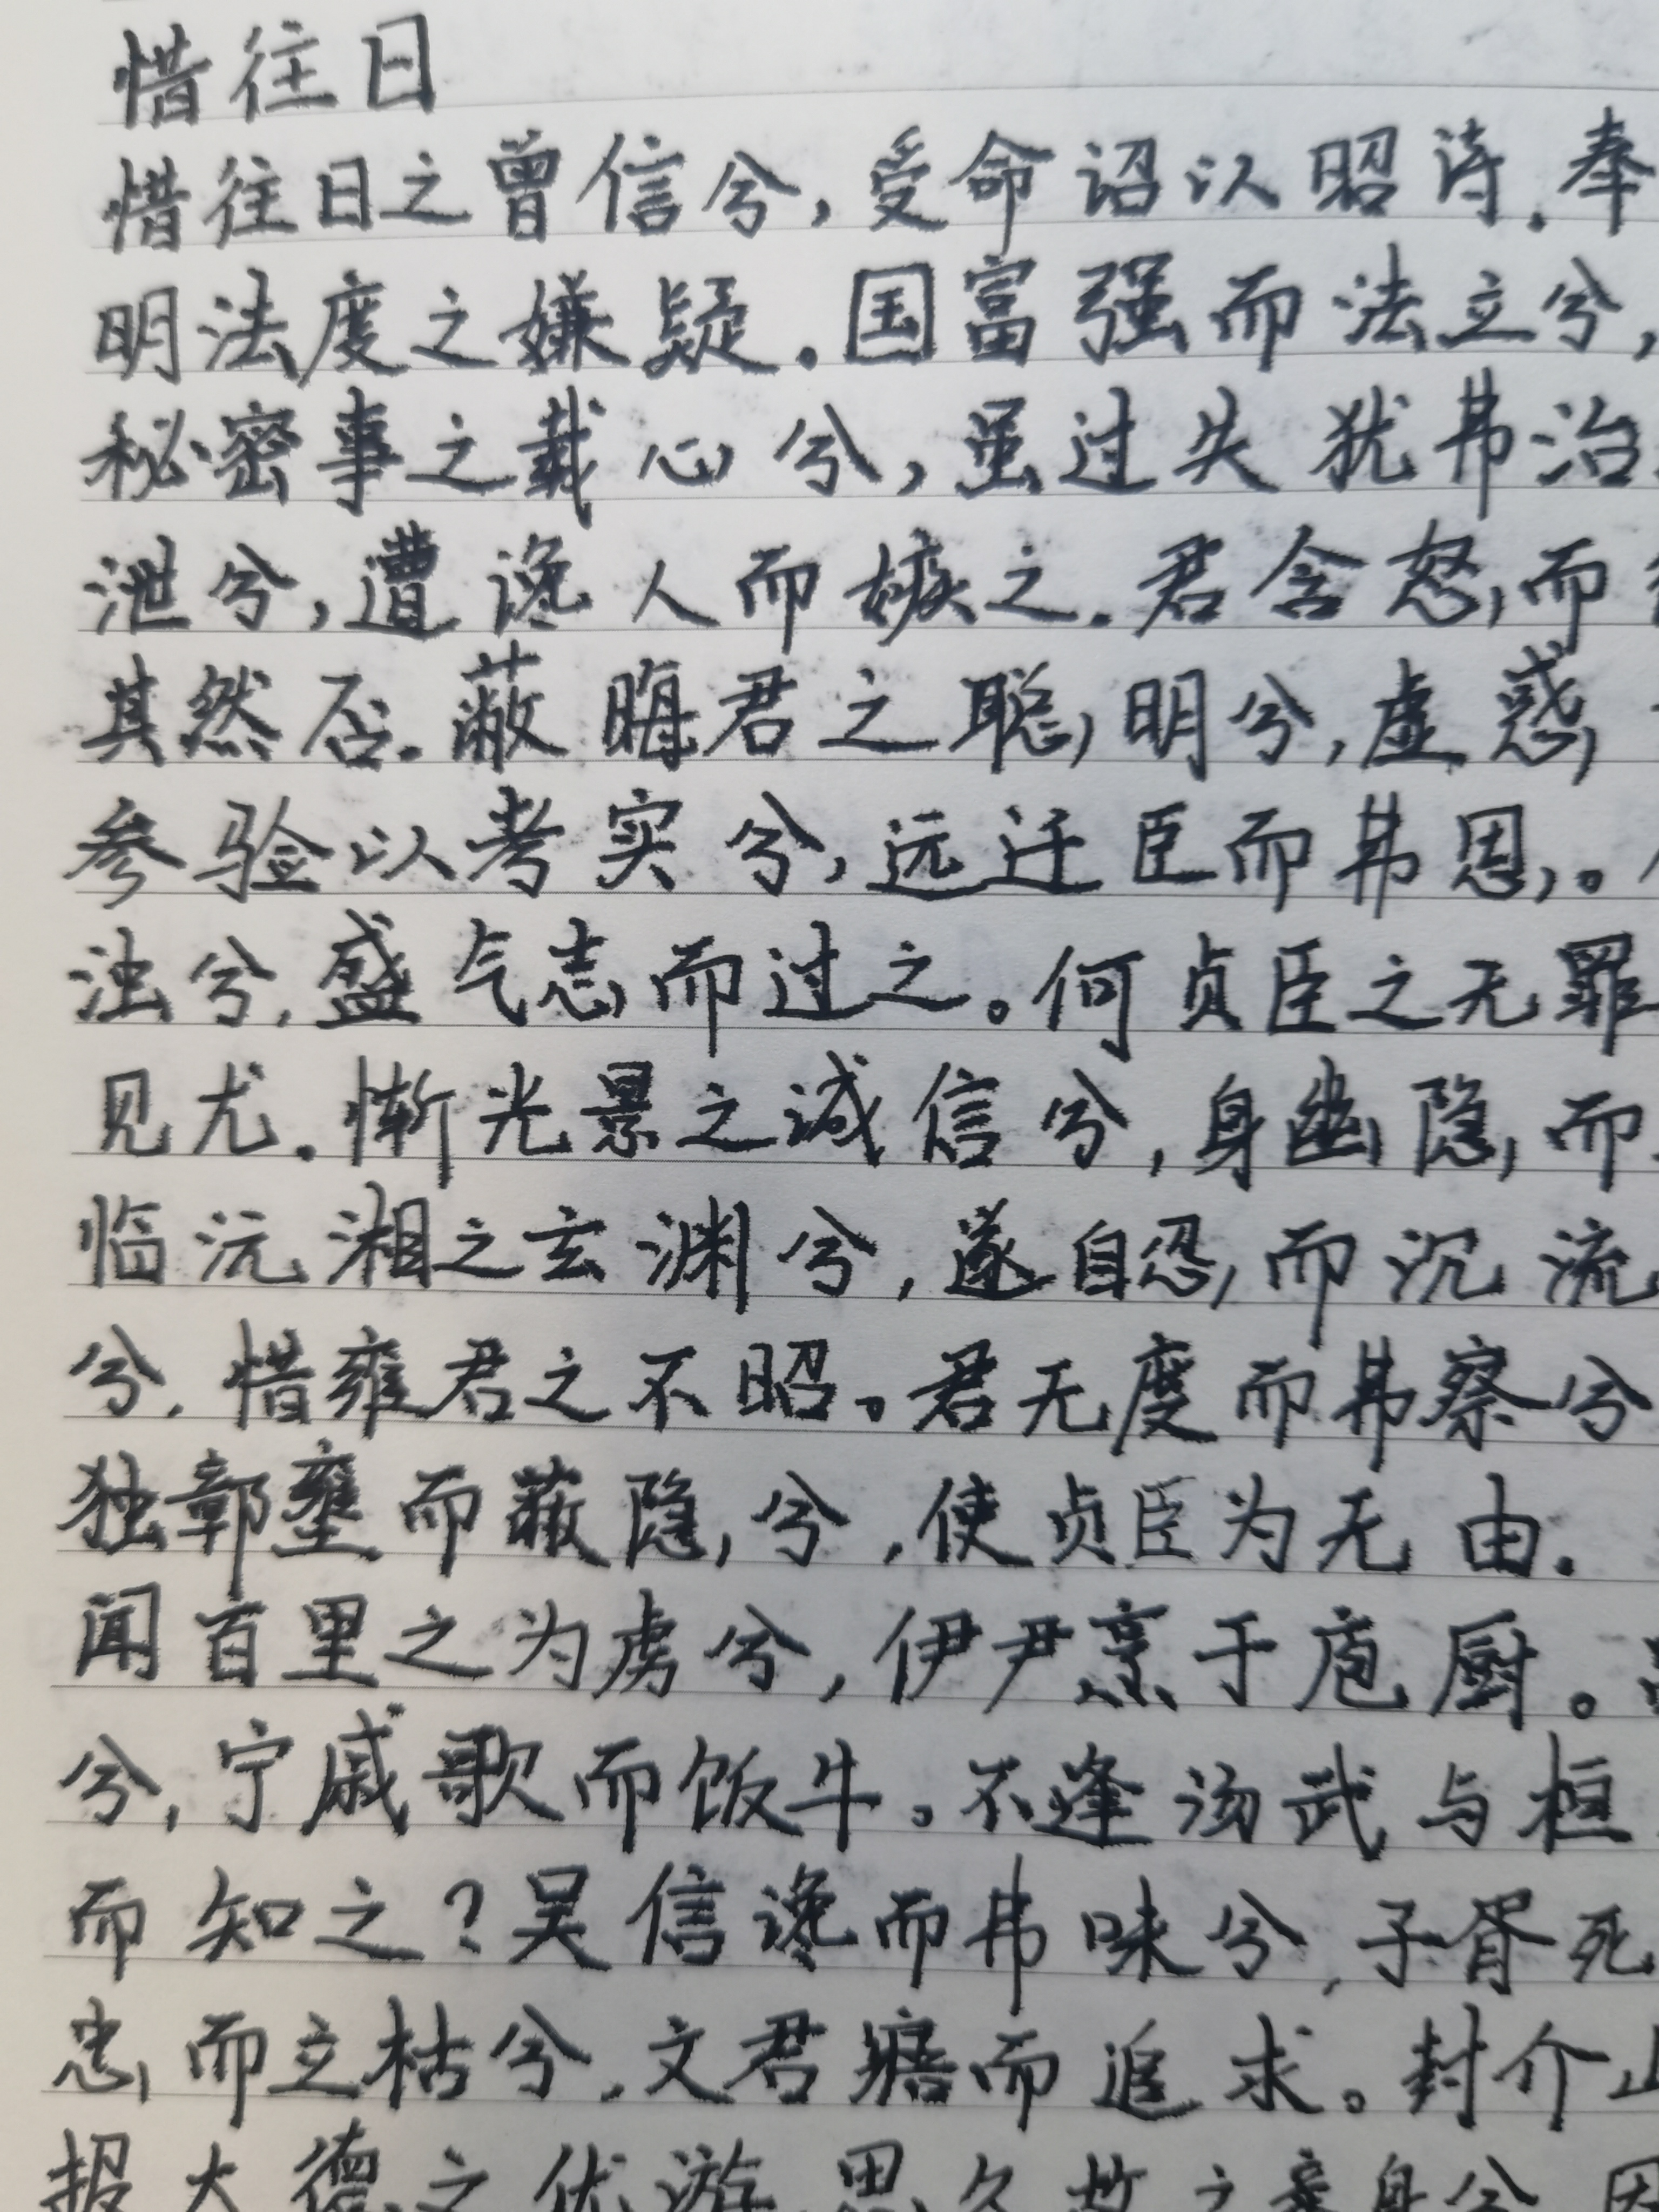 惜往日
惜往日之曾信兮,受命诏以昭诗.奉
明法度之嫌疑。国富强而法立兮,
秘密事之载心兮,虽过失犹弗治
泄兮,遭谗人而嫉之.君含怒而
其然否.蔽晦君之聪明兮,虚惑
参验以考实兮,远迁臣而弗思。
浊兮,盛气志而过之。何贞臣之无罪
见尤.惭光景之诚信兮,身幽隐而
临沅湘之玄渊兮,遂自忍而沉流
兮.惜雍君之不昭。君无度而弗察兮
独鄣壅而蔽隐兮,使贞臣为无由.
闻百里之为虏兮,伊尹烹于庖厨。
兮,宁戚歌而饭牛。不逢汤武与桓
而知之?吴信谗而弗味兮,子胥死
忠而立枯兮,文君寤而追求。封介山
报大德之优游.思久故之亲身兮,因